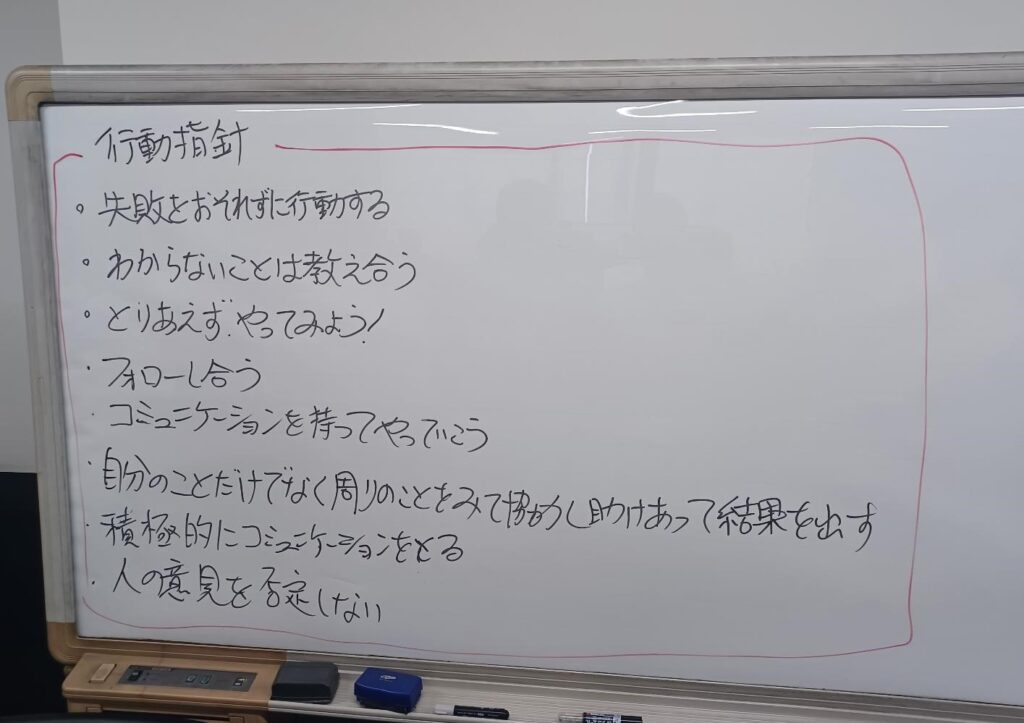 行動指針
。失敗をおそれずに行動する
。わからないことは教え合う
。とりあえず、やってみよう!
・フォローし合う
・コミュニケーションを持ってやっていこう
・自分のことだけでなく周りのことをみて協力し助けあって結果を出す
・積極的にコミュニケーションをとる
・人の意見を否定しない